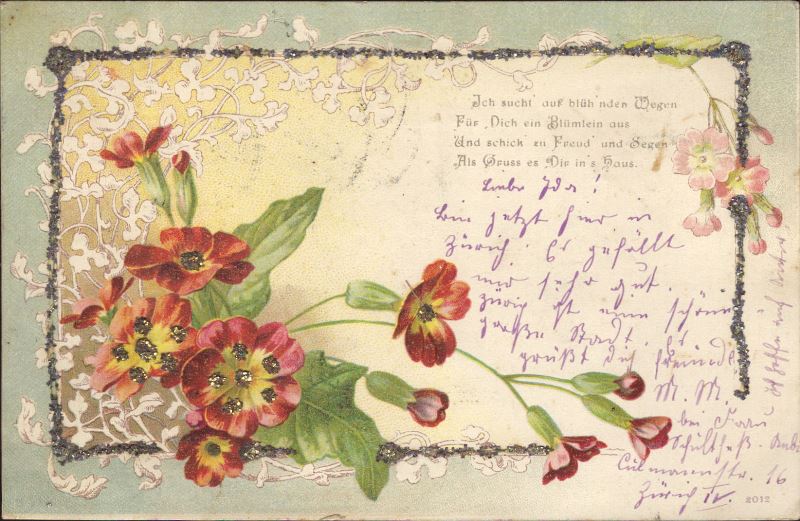 Ich sucht' auf blüh'nden Wegen
Für Dich ein Blümlein aus
Und schick' zu Freud' und Segen
Als Gruss es Dir in's Haus.
Liebe Ida!
Bin jetzt hier in
Zürich. Es gefällt
mir sehr gut.
Zürich ist eine schöne
große Stadt. Es
grüßt dich freundl.
M. M.
bei Frau
Schultheß
Culmannstr. 16
Zürich IV.
2012